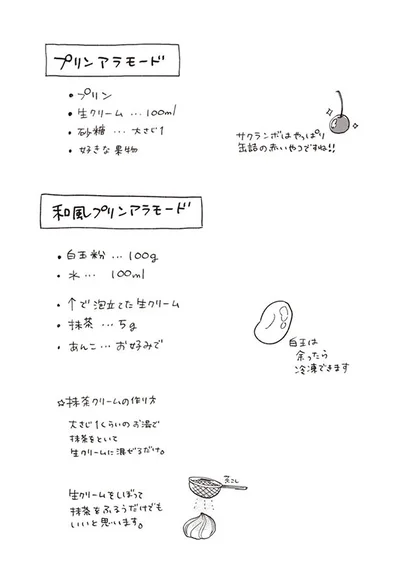 プリンアラモード
・プリン
・生クリーム … 100ml
・砂糖 … 大さじ1
・好きな果物
サクランボはやっぱり
缶詰の赤いやつですね!!
和風プリンアラモード
・白玉粉 … 100g
・水 … 100ml
・↑で泡立てた生クリーム
・抹茶 … 5g
・あんこ … お好みで
白玉は
余ったら
冷凍できます
☆抹茶クリームの作り方
大さじ1くらいのお湯で
抹茶をといて
生クリームに混ぜるだけ。
茶こし
生クリームをしぼって
抹茶をふるうだけでも
いいと思います。